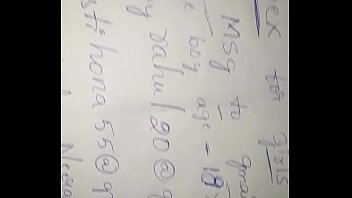 ex for girls
MSg to gmai
e boy age = 18
y rahul20@g
hona55@g